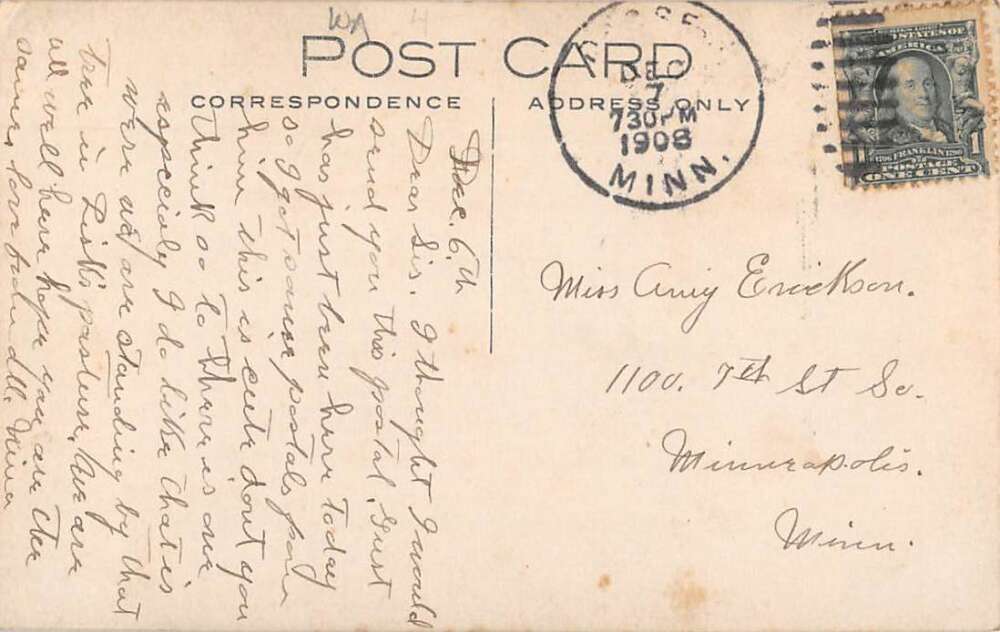 WA
POST CARD
CORRESPONDENCE
ADDRESS ONLY
DEC
7
730 PM
1908
MINN.
UNITED STATES OF
AMERICA
1706 FRANKLIN 1790
POSTAGE
ONE CENT
1
Dec. 6.th
Dear Sis. I thought I would
send you this postal. Gust
has just been here today
so I got some postals from
him this is cute dont you
think so to there is one
especialy I do like that is
were we are standing by that
tree in Lisk's pasture. We are
all well here hope you are the
same love from all. Nina
Miss Amy Erickson.
1100. 7th St So.
Minneapolis.
Minn.